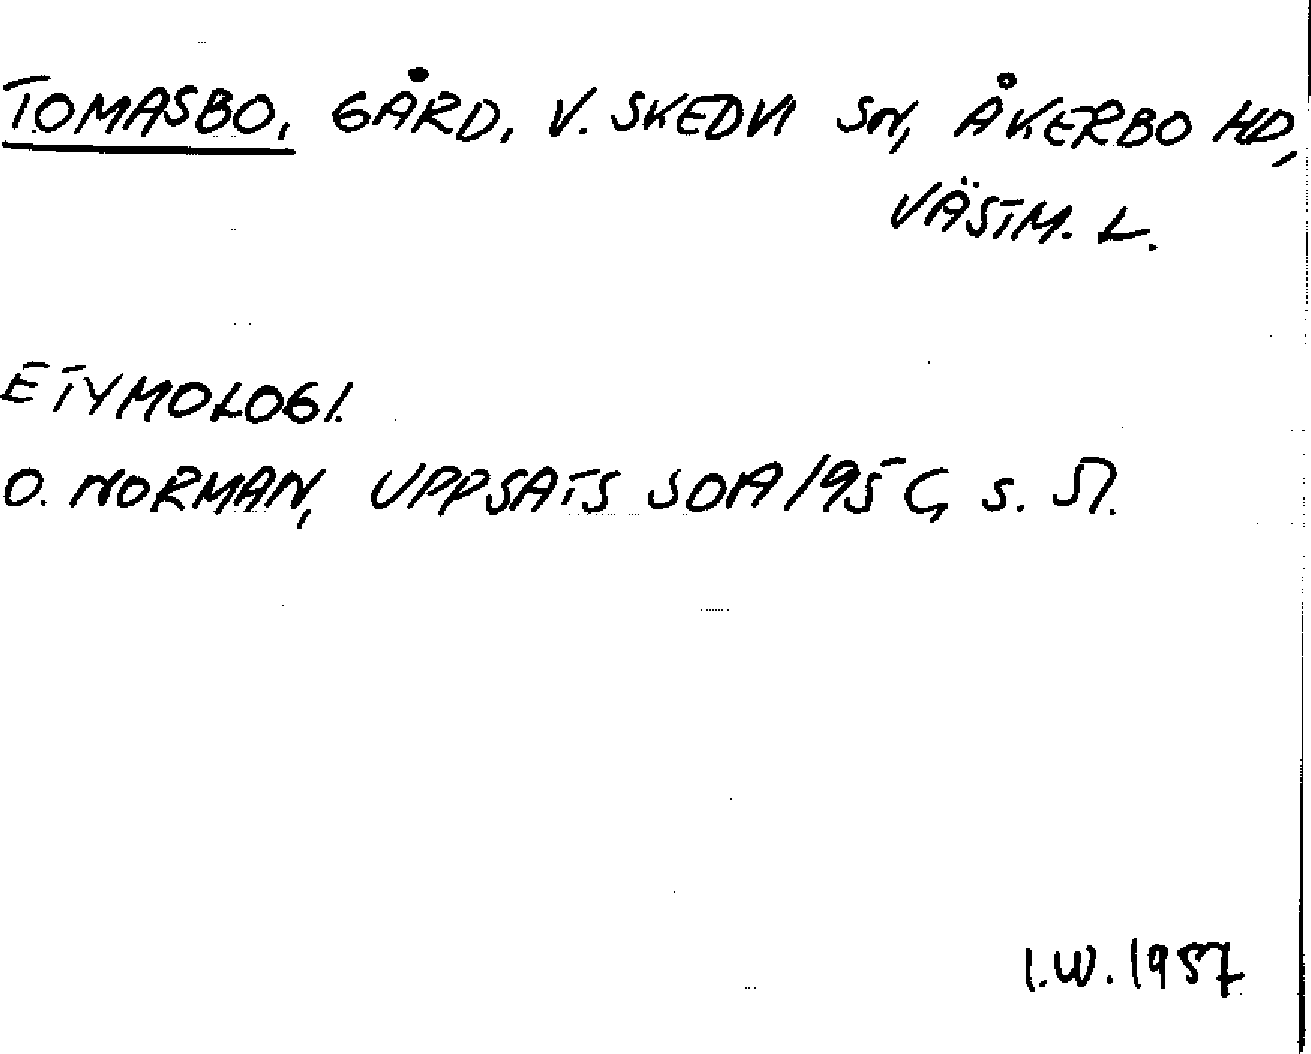 TOMASBO, GÅRD, V. SKEDVI SN, ÅKERBO HD,
VÄSTM. L.
ETYMOLOGI.
O. NORMAN, UPPSATS SOA 195 s.
I.W. 1957